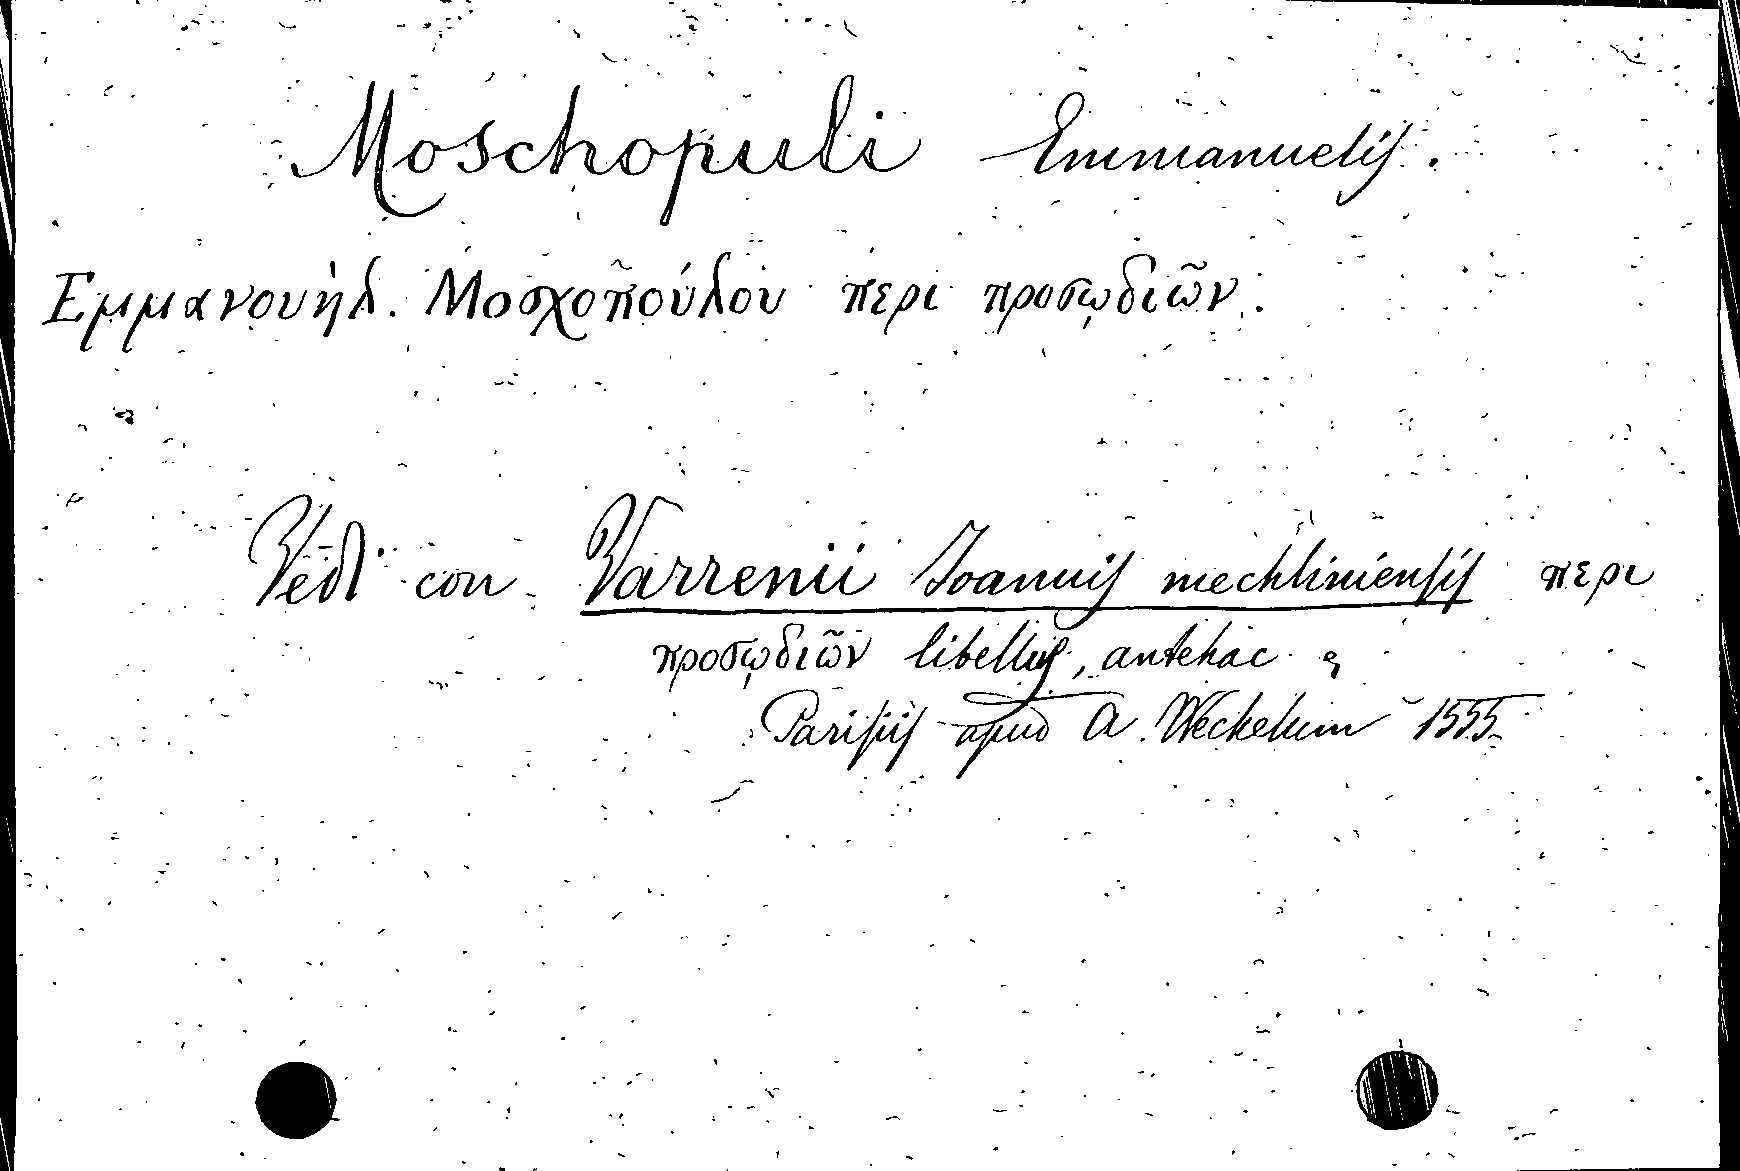 Moschopuli Emmanuelis.
Εμμανουὴλ. Μοσχοπούλου περι προσῳδιῶν.
Vedi con Varrenii Ioannis mechliniensis περι
προσῳδιῶν libellus, antehac &
Parisiis apud A. Weckelum 1555